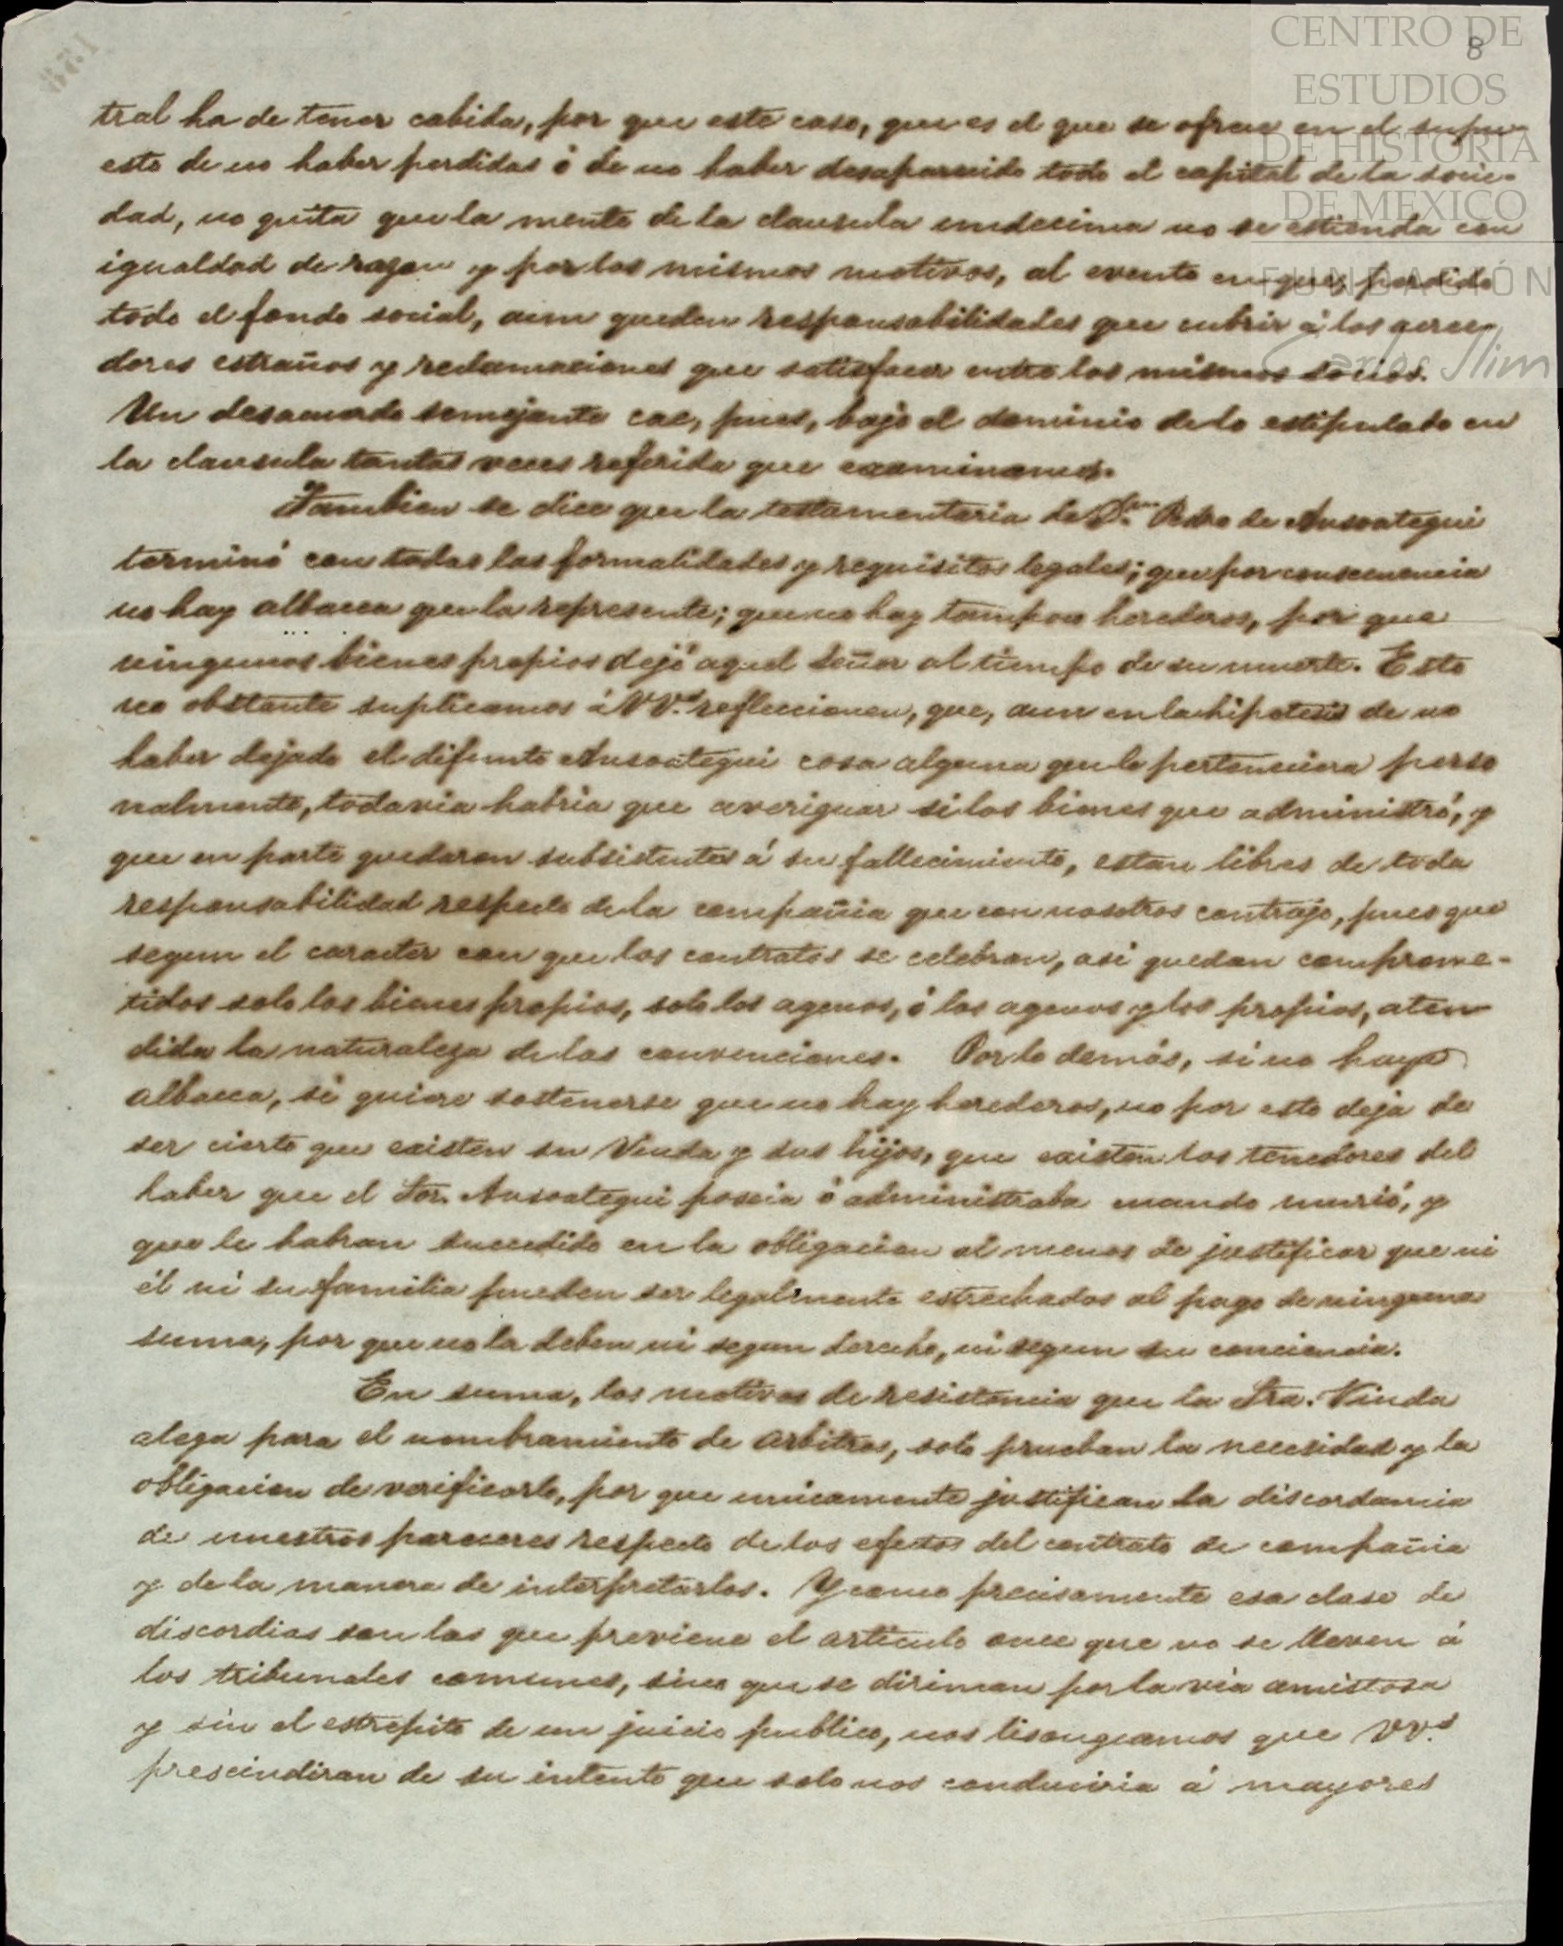 CENTRO DE
ESTUDIOS
DE HISTORIA
DE MEXICO
FUNDACIÓN
Carlos Slim
8
tral ha de tener cabida, por que este caso, que es el que se ofrece en el supu-
esto de no haber perdidas ó de no haber desaparecido todo el capital de la socie-
dad, no quita que la mente de la clausula undecima no se estienda con
igualdad de razon y por los mismos motivos, al evento en que, perdido
todo el fondo social, aun queden responsabilidades que cubrir á los acree-
dores estraños y reclamaciones que satisfacer entre los mismos socios.
Un desacuerdo semejante cae, pues, bajo el dominio de lo estipulado en
la clausula tantas veces referida que examinamos.
Tambien se dice que la testamentaria de Dn. Pedro de Ansoategui
terminó con todas las formalidades y requisitos legales; que por consecuencia
no hay albacea que la represente; que no hay tampoco herederos, por que
ningunos bienes propios dejó aquel Señor al tiempo de su muerte. Esto
no obstante suplicamos á VV.s refleccionen, que, aun en la hipotesis de no
haber dejado el difunto Ansoategui cosa alguna que le perteneciera perso
nalmente, todavia habria que averiguar si los bienes que administró, y
que en parte quedaron subsistentes á su fallecimiento, estan libres de toda
responsabilidad respecto de la compañia que con nosotros contrajo, pues que
segun el caracter con que los contratos se celebran, asi quedan comprome-
tidos solo los bienes propios, solo los agenos, ó los agenos y los propios, aten
dida la naturaleza de las convenciones. Por lo demás, si no haya
albacea, si quiere sostenerse que no hay herederos, no por esto deja de
ser cierto que existen su Viuda y sus hijos, que existen los tenedores del
haber que el Sor. Ansoategui poseia ó administraba cuando murió, y
que le habran sucedido en la obligacion al menos de justificar que ni
él ni su familia pueden ser legalmente estrechados al pago de ninguna
suma, por que no la deben ni segun derecho, ni segun su conciencia.
En suma, los motivos de resistencia que la Sra. Viuda
alega para el nombramiento de arbitros, solo prueban la necesidad y la
obligacion de verificarlo, por que unicamente justifican la discordancia
de nuestros pareceres respecto de los efectos del contrato de compañia
y de la manera de interpretarlos. Y como precisamente esa clase de
discordias son las que previene el articulo once que no se lleven á
los tribunales comunes, sino que se diriman por la via amistosa
y sin el estrepito de un juicio publico, nos lisongeamos que VV.s
prescindiran de su intento que solo nos conduciria á mayores